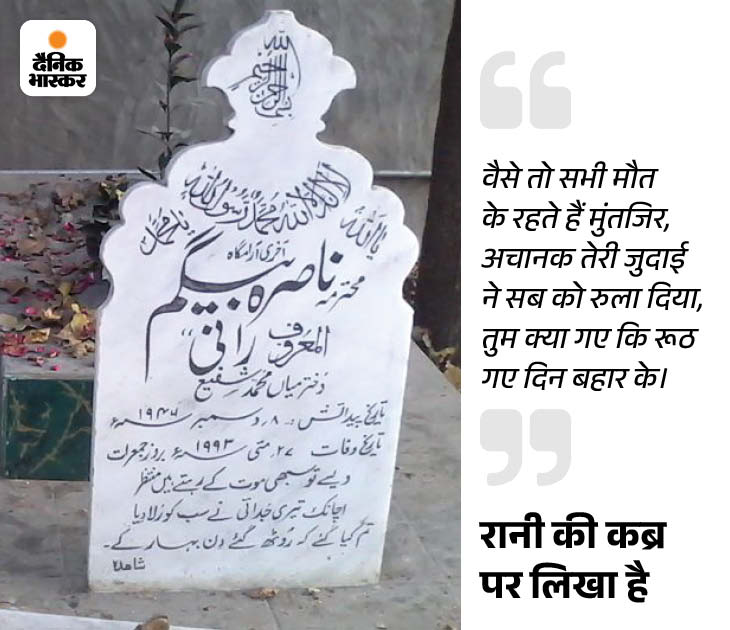 दैनिक
भास्कर
بسم الله الرحمن الرحيم
لا اله الا الله محمد رسول الله
یا اللہ
یا محمد
آخری آرامگاہ
محترمہ ناصرہ بیگم
المعروف "رانی"
دختر میاں محمد شفیع
تاریخ پیدائش :۔ ۸ دسمبر ۱۹۴۶ء
تاریخ وفات ۲۷ مئی ۱۹۹۳ء بروز جمعرات
ویسے تو سبھی موت کے رہتے ہیں منتظر
اچانک تیری جُدائی نے سب کو رُلا دیا
تم کیا گئے کہ رُوٹھ گئے دن بہار کے۔
वैसे तो सभी मौत
के रहते हैं मुंतजिर,
अचानक तेरी जुदाई
ने सब को रुला दिया,
तुम क्या गए कि रूठ
गए दिन बहार के।
रानी की कब्र
पर लिखा है